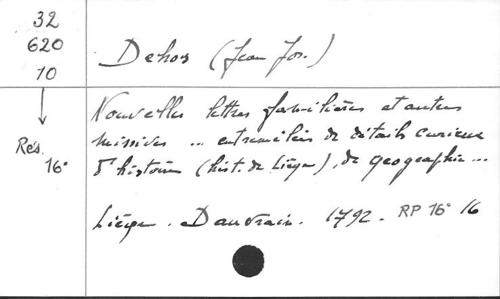 32
620
10
Dehos (Jean Jos.)
Rés.
16°
Nouvelles lettres familières et autres
missives ... entremêlées de détails curieux
d'histoire (hist. de Liège), de géographie ...
Liège. Dauvrain. 1792. RP 16° 16